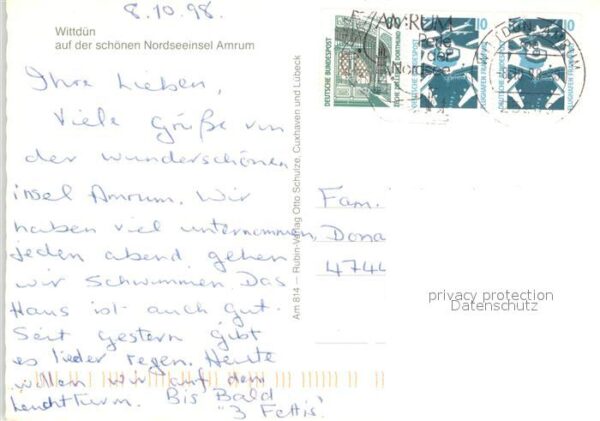 8.10.98.
Wittdün
auf der schönen Nordseeinsel Amrum
Ihre Lieben,
Viele Grüße von
der wunderschönen
insel Amrum. Wir
haben viel unternommen,
jeden abend gehen
wir schwimmen. Das
Haus ist auch gut.
Seit gestern gibt
es lieder regen. Heute
wollen wir auf dem
Leuchtturm. Bis Bald
"3 Fettis"
Am 814 — Rubin-Verlag Otto Schulze, Cuxhaven und Lübeck
DEUTSCHE BUNDESPOST
DORTMUND
DEUTSCHE BUNDESPOST
FLUGHAFEN FRANKFURT
10
DEUTSCHE BUNDESPOST
FLUGHAFEN FRANKFURT
10
AMRUM
Perle
der
Nordsee
Fam.
Dona
4744
privacy protection
Datenschutz